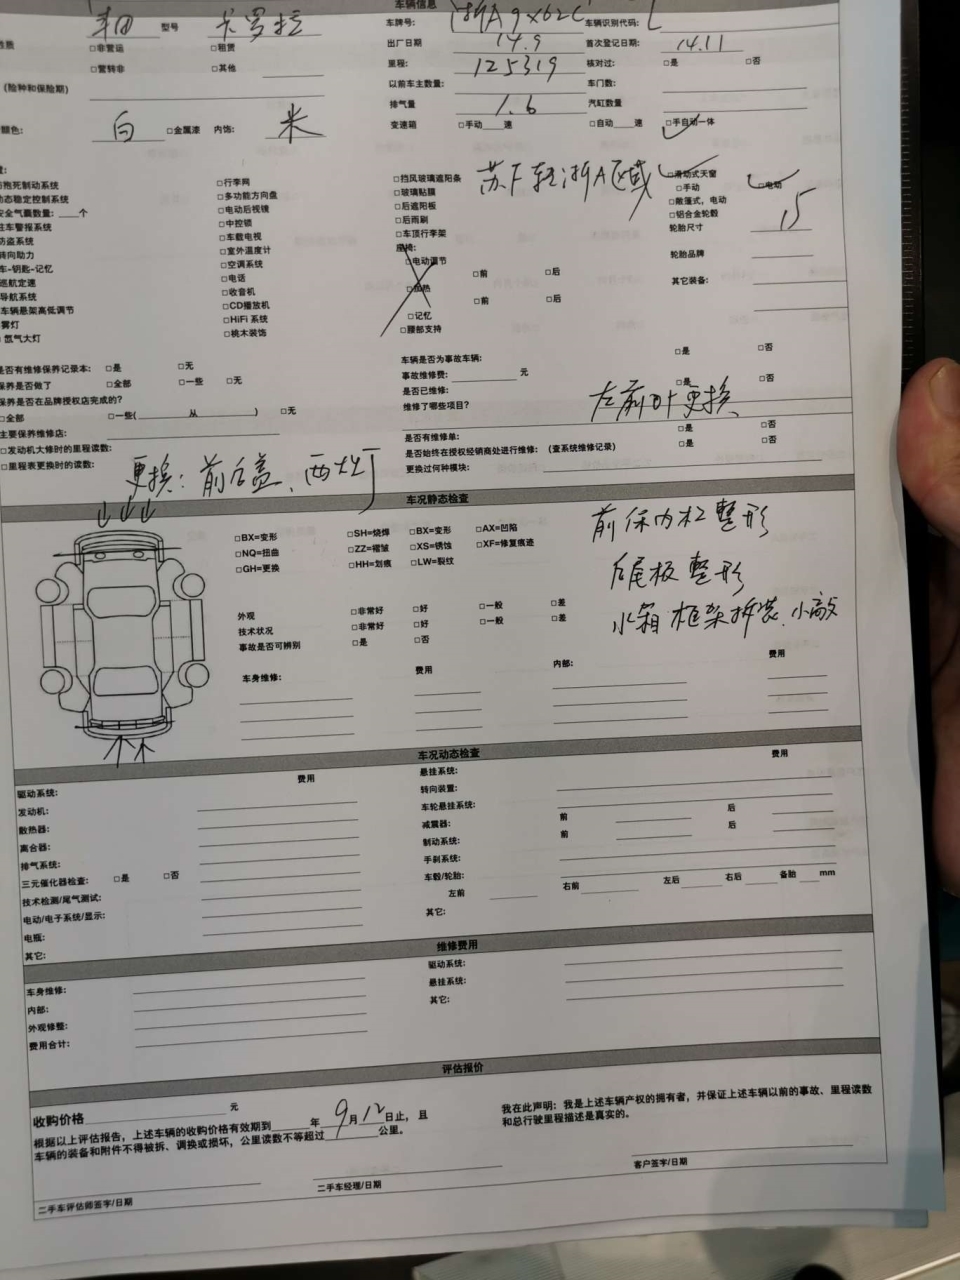 车辆信息
丰田 型号 卡罗拉 车牌号: 浙A9X62C 车辆识别代码: L
性质 □非营运 □租赁 出厂日期 14.9 首次登记日期: 14.11
□营转非 □其他 里程: 125319 核对过: □是 □否
(险种和保险期) 以前车主数量: 车门数:
排气量 1.6 汽缸数量
颜色: 白 □金属漆 内饰: 米 变速箱 □手动 速 □自动 速 □手自动一体
抱死制动系统 □行李网 □挡风玻璃遮阳条 苏F转浙A区域 □滑动式天窗
动态稳定控制系统 □多功能方向盘 □玻璃贴膜 □手动 □电动
安全气囊数量: 个 □电动后视镜 □后遮阳板 □敞篷式,电动
驻车警报系统 □中控锁 □后雨刷 □铝合金轮毂
防盗系统 □车载电视 □车顶行李架 轮胎尺寸 15
转向助力 □室外温度计 座椅:
车-钥匙-记忆 □空调系统 □电动调节 轮胎品牌
巡航定速 □电话 □前 □后 其它装备:
导航系统 □收音机 □加热
车辆悬架高低调节 □CD播放机 □前 □后
雾灯 □HiFi 系统 □记忆
氙气大灯 □桃木装饰 □腰部支持
是否有维修保养记录本: □是 □无 车辆是否为事故车辆: □是 □否
保养是否做了 □全部 □一些 □无 事故维修费: 元
保养是否在品牌授权店完成的? 是否已维修: □是 □否
□全部 □一些( 从 ) □无 维修了哪些项目? 左前叶更换
主要保养维修店: 是否有维修单: □是 □否
□发动机大修时的里程读数: 是否始终在授权经销商处进行维修: (查系统维修记录) □是 □否
□里程表更换时的读数: 更换过何种模块:
更换: 前后盖、两大灯
车况静态检查
□BX=变形 □SH=烧焊 □BX=变形 □AX=凹陷 前保内杠整形
□NQ=扭曲 □ZZ=褶皱 □XS=锈蚀 □XF=修复痕迹
□GH=更换 □HH=划痕 □LW=裂纹 后尾板整形
外观 □非常好 □好 □一般 □差 水箱框架拆装、小敲
技术状况 □非常好 □好 □一般 □差
事故是否可辨别 □是 □否
车身维修: 费用 内部: 费用
车况动态检查
费用 悬挂系统: 费用
驱动系统: 转向装置:
发动机: 车轮悬挂系统: 后
散热器: 减震器: 前 后
离合器: 制动系统: 前
排气系统: 手刹系统:
三元催化器检查: □是 □否 车毂/轮胎:
技术检测/尾气测试: 左前 右前 左后 右后 备胎 mm
电动/电子系统/显示: 其它:
电瓶:
其它:
维修费用
车身维修: 驱动系统:
内部: 悬挂系统:
外观修整: 其它:
费用合计:
评估报价
收购价格 元
根据以上评估报告,上述车辆的收购价格有效期到 年 9月12日止,且
车辆的装备和附件不得被拆、调换或损坏,公里读数不等超过 公里。
我在此声明:我是上述车辆产权的拥有者,并保证上述车辆以前的事故、里程读数
和总行驶里程描述是真实的。
二手车评估师签字/日期 二手车经理/日期 客户签字/日期